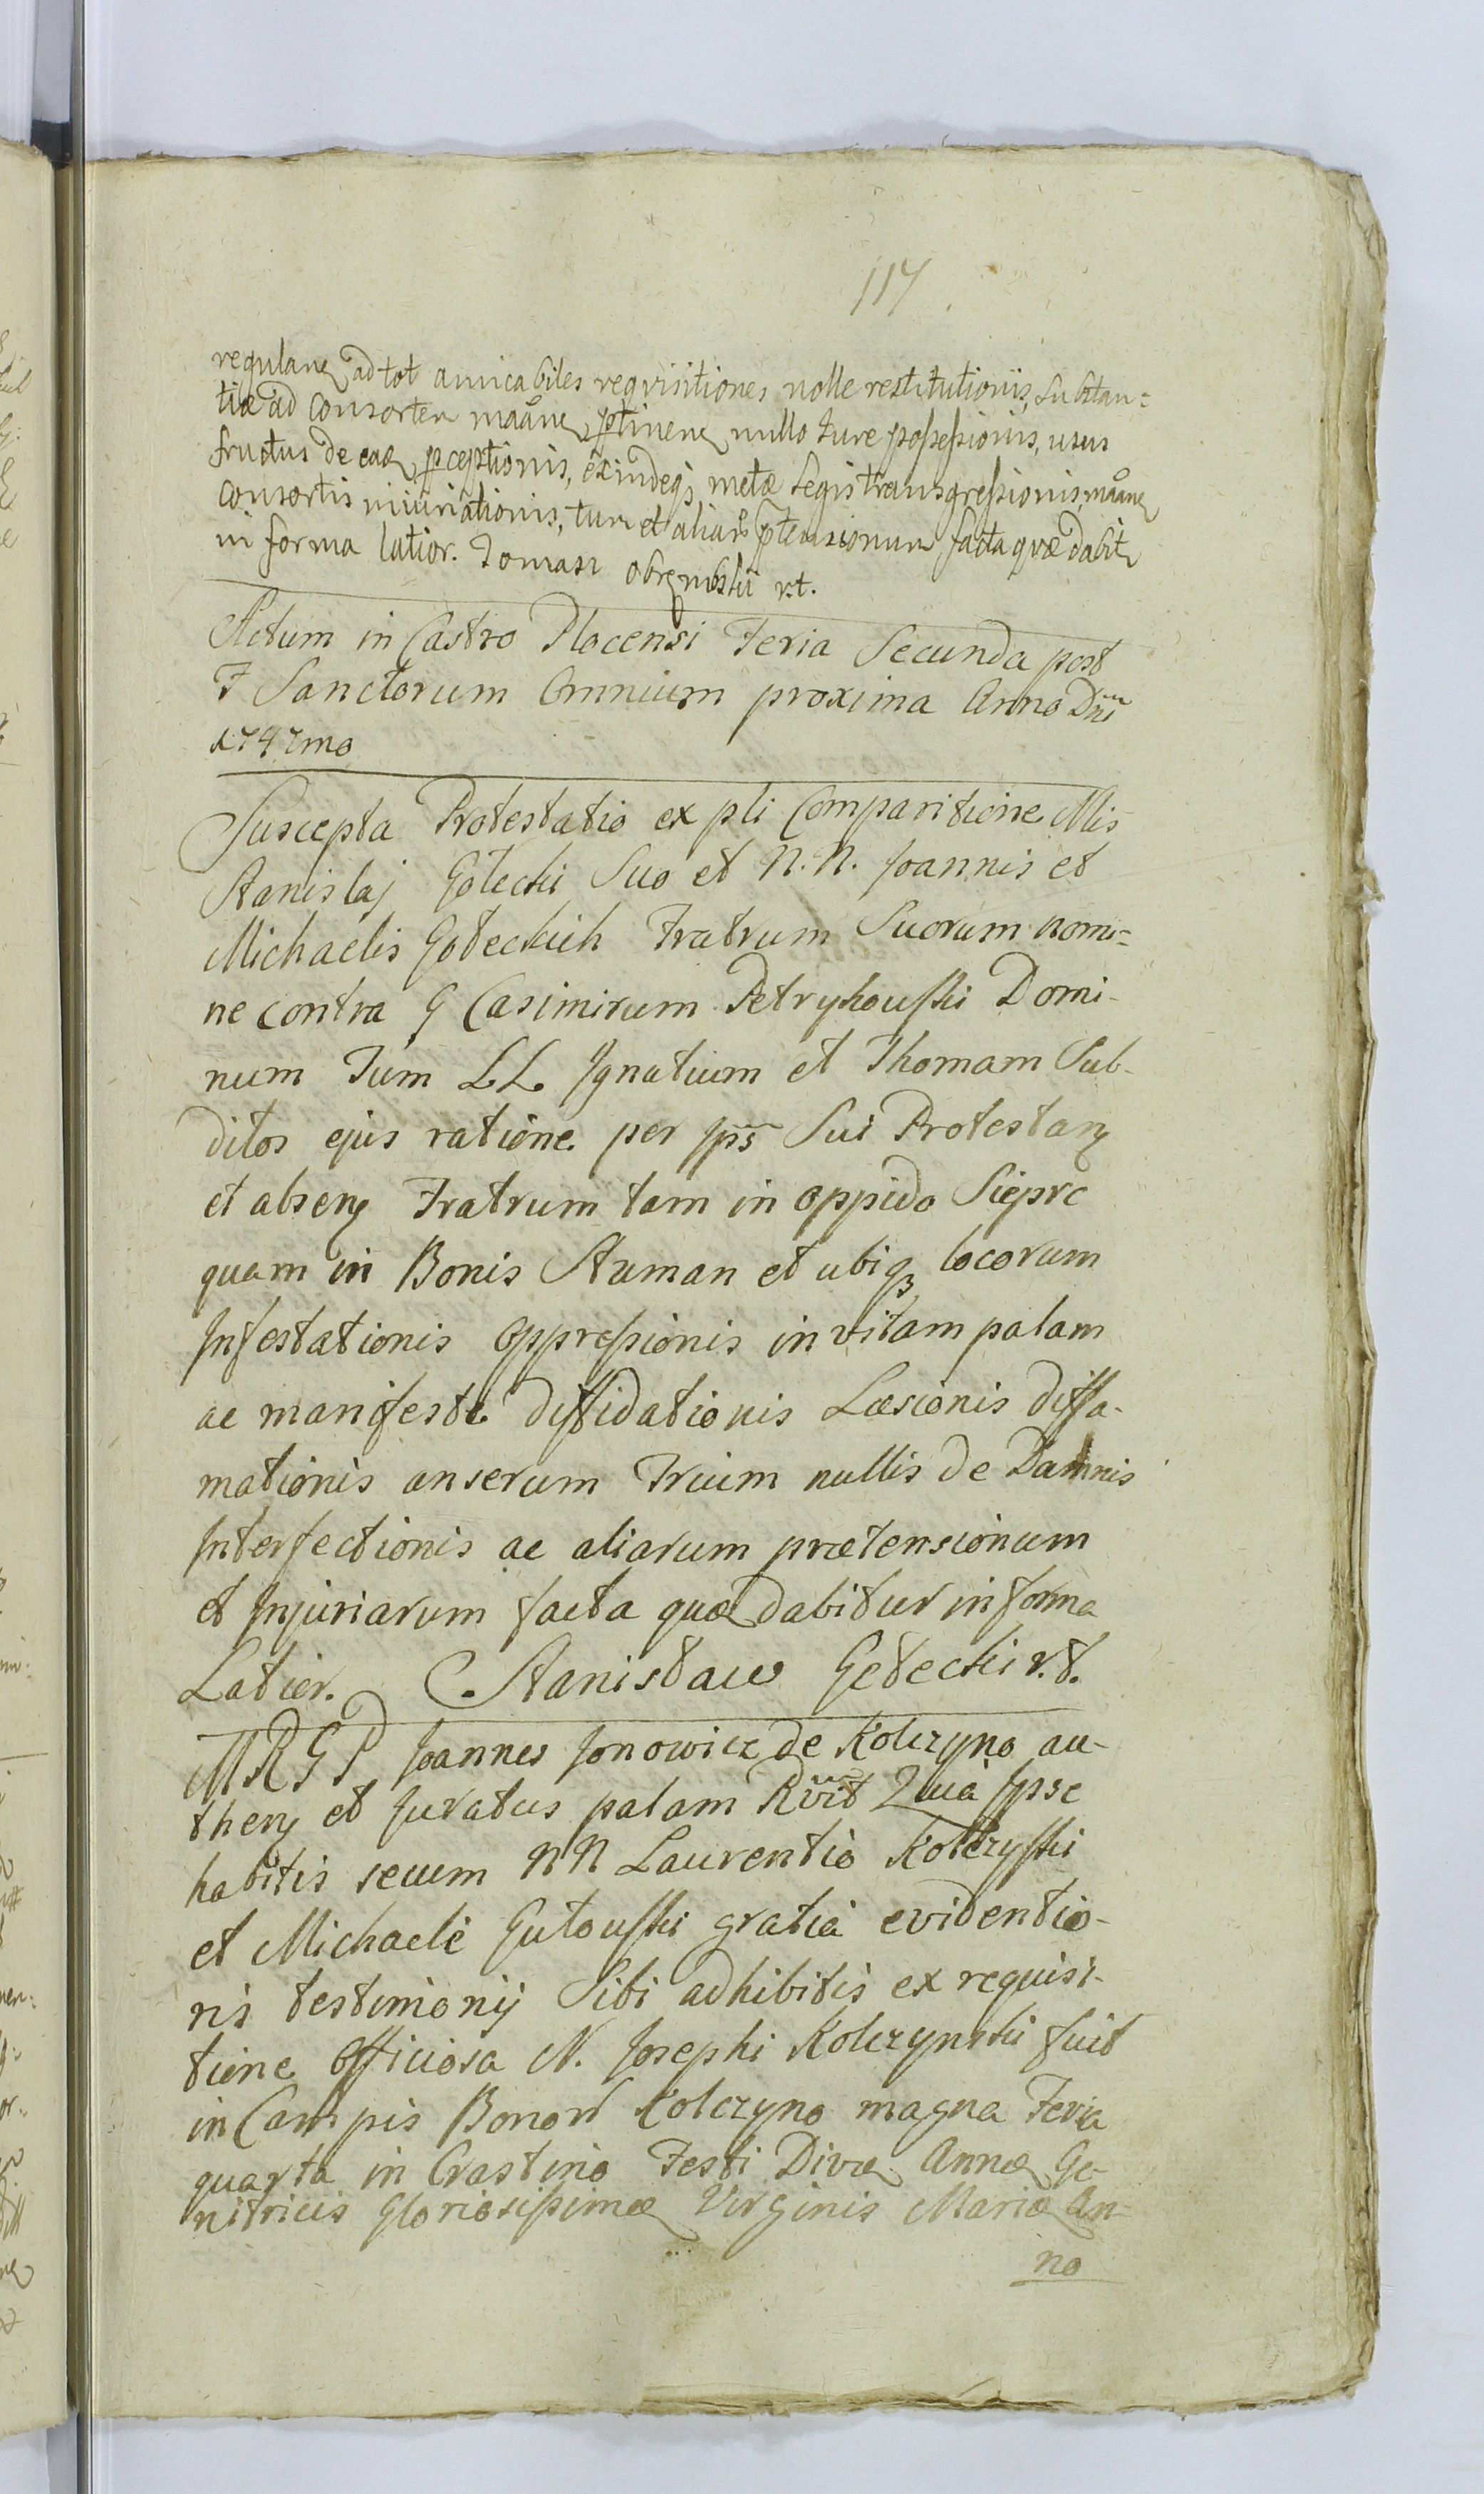 117
regulane ad tot amicabiles requisitiones nolle restitutionis, substan=
tiæ ad consortem maane ptinene nullo Jure possessionis, usus
fructus de eade pceptionis, exindeq; metæ Legis transgressionis, maane
consortis iniuriationis, tum et aliar ptensionum facta quæ dabit
in forma latior. Tomasz r.t.
Actum in Castro Plocensi Feria Secunda post
F Sanctorum Omnium proxima Anno Dni
1747mo
Suscepta Protestatio ex pli Comparitione Mis
Stanislaj Gołecki Suo et N. N. Joannis et
Michaelis Gołeckich Fratrum Suorum nomi=
ne contra G Casimirum Petrykouski Domi-
num Tum LL Ignatium et Thomam Sub-
ditos ejus ratione per Ips Sui Protestan
et absen Fratrum tam in oppido Sieprc
quam in Bonis et ubiq; locorum
Infestationis oppressionis in vitam palam
ac manifeste diffidationis Læsionis diffa-
mationis anserum Trium nullis de Damnis
Interfectionis ac aliarum prætensionum
et Injuriarum facta quæ dabitur in forma
Latior. Stanisław Gołecki r.t.
MRGP Joannes Jonowicz de Kolczyno au-
then et Juratus palam Rvit Quia Ipse
habitis secum NN Laurentio Kolczyski
et Michaele Gutouski gratia evidentio-
ris testimonij Sibi adhibitis ex requisi-
tione Officiosa N. Josephi Kolczynski fuit
in Campis Bonor Kolczyno magna Feria
quarta in Crastino Festi Divæ Annæ Ge-
nitricis Gloriosissimæ Virginis Mariæ An-
no